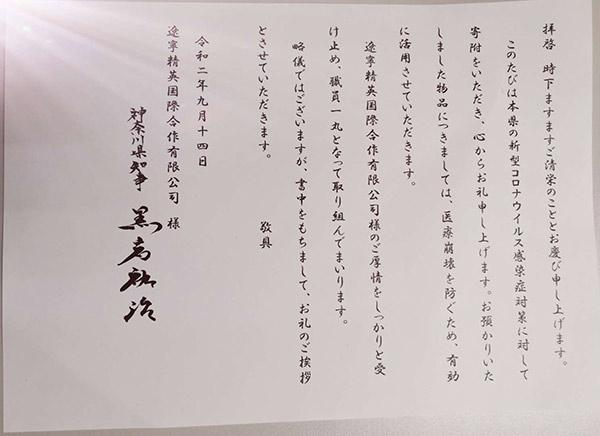 拝啓　時下ますますご清栄のこととお慶び申し上げます。
このたびは本県の新型コロナウイルス感染症対策に対して
寄附をいただき、心からお礼申し上げます。お預かりいた
しました物品につきましては、医療崩壊を防ぐため、有効
に活用させていただきます。
遼寧精英国際合作有限公司様のご厚情をしっかりと受
け止め、職員一丸となって取り組んでまいります。
略儀ではございますが、書中をもちまして、お礼のご挨拶
とさせていただきます。
敬具
令和二年九月十四日
遼寧精英国際合作有限公司　様
神奈川県知事　黒岩祐治